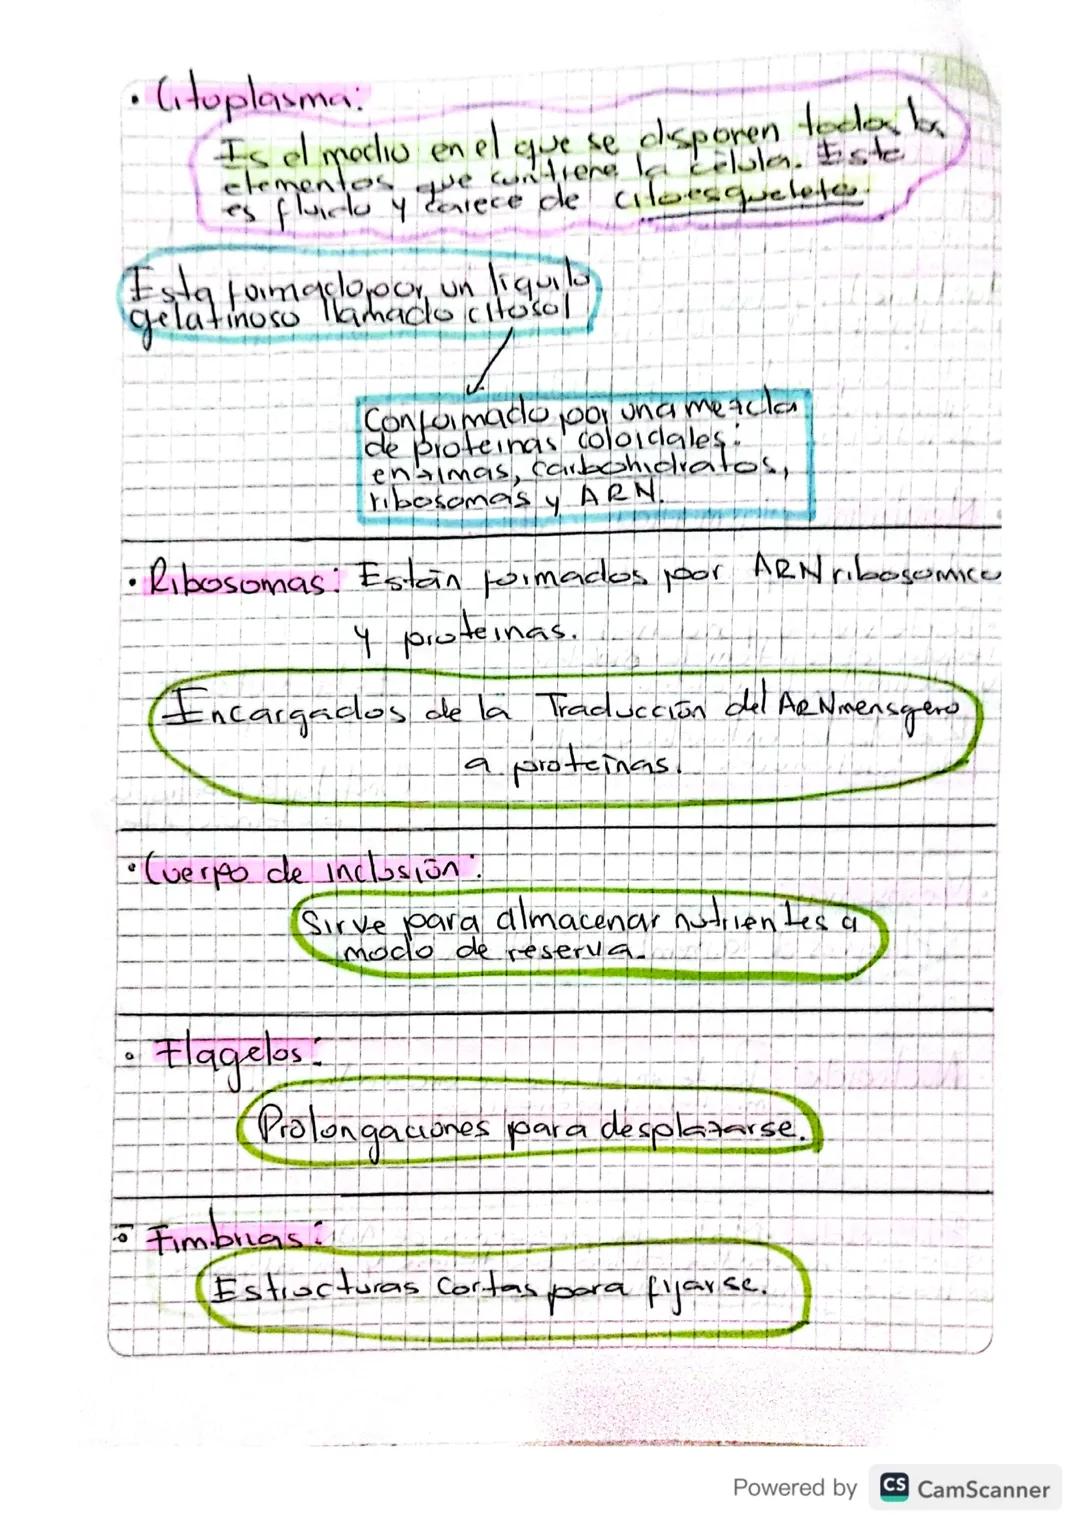 • Citoplasma:
Es el medio en el que se disponen todos los
elementos que contiene la célula. Este
es fluido y carece de citoesqueleto.
Esta formado por un liquido
gelatinoso llamado citosol
Conformado por una mezcla
de proteinas coloidales:
enzimas, carbohidratos,
ribosomas y ARN.
• Ribosomas: Están formados por ARN ribosomico
y proteinas.
Encargados de la Traducción del ARNmensgero
a proteínas.
• Cuerpo de inclusión:
Sirve para almacenar nutrientes a
modo de reserva.
• Flagelos:
Prolongaciones para desplazarse.
• Fimbrias:
Estructuras Cortas para fijarse.
Powered by CS CamScanner